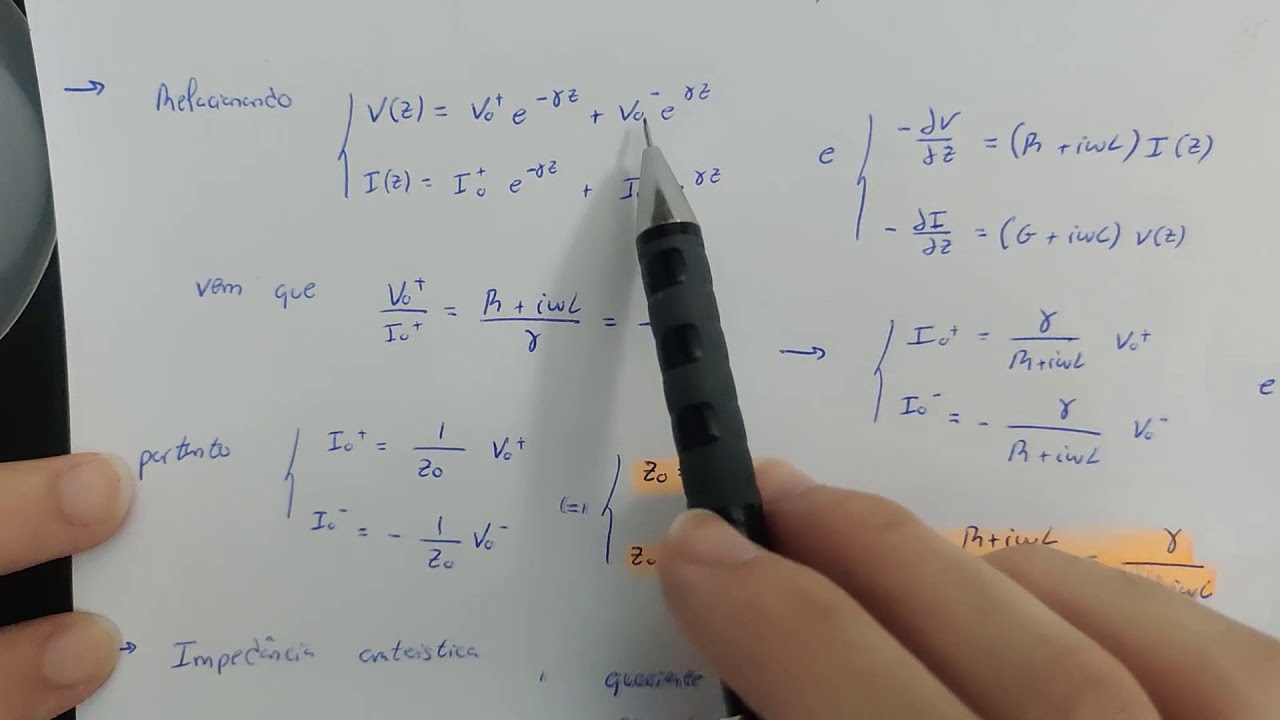 → Relacionando { V(z) = V₀⁺ e^{-γz} + V₀⁻ e^{γz}
I(z) = I₀⁺ e^{-γz} + I γz
e { - dV/dz = (R + iωL) I(z)
- dI/dz = (G + iωC) V(z)
vem que V₀⁺/I₀⁺ = (R + iωL)/γ = -
→ { I₀⁺ = γ/(R+iωL) V₀⁺
I₀⁻ = - γ/(R+iωL) V₀⁻
e
portanto { I₀⁺ = 1/Z₀ V₀⁺
I₀⁻ = - 1/Z₀ V₀⁻
(=) { Z₀ =
Z₀
R+iωL = γ/ iωC
→ Impedância cateística , quociente